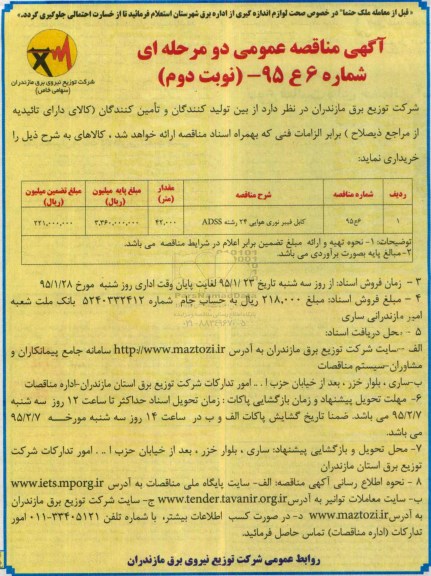 « قبل از معامله ملک حتما" در خصوص صحت لوازم اندازه گیری از اداره برق شهرستان استعلام فرمائید تا از خسارت احتمالی جلوگیری گردد.»
آگهی مناقصه عمومی دو مرحله ای
شماره ۶ ع ۹۵- (نوبت دوم)
شرکت توزیع نیروی برق مازندران
(سهامی خاص)
شرکت توزیع برق مازندران در نظر دارد از بین تولید کنندگان و تأمین کنندگان (کالای دارای تائیدیه
از مراجع ذیصلاح ) برابر الزامات فنی که بهمراه اسناد مناقصه ارائه خواهد شد ، کالاهای به شرح ذیل را
خریداری نماید:
ردیف شماره مناقصه شرح مناقصه مقدار (متر) مبلغ پایه میلیون (ریال) مبلغ تضمین میلیون (ریال)
۱ ۶ع۹۵ کابل فیبر نوری هوایی ۲۴ رشته ADSS ۴۲.۰۰۰ ۳.۳۶۰.۰۰۰.۰۰۰ ۲۲۱,۰۰۰,۰۰۰
توضیحات: ۱- نحوه تهیه و ارائه مبلغ تضمین برابر اعلام در شرایط مناقصه می باشد.
۲- مبالغ پایه بصورت برآوردی می باشد.
۳ - زمان فروش اسناد: از روز سه شنبه تاریخ ۹۵/۱/۲۳ لغایت پایان وقت اداری روز شنبه مورخ ۹۵/۱/۲۸
۴ - مبلغ فروش اسناد: مبلغ ۲۱۸,۰۰۰ ریال به حساب جام شماره ۵۲۴۰۳۳۲۴۱۲ بانک ملت شعبه
امیر مازندرانی ساری
۵ - محل دریافت اسناد:
الف -سایت شرکت توزیع برق مازندران به آدرس http://www.maztozi.ir سامانه جامع پیمانکاران و
مشاوران-سیستم مناقصات
ب-ساری ، بلوار خزر ، بعد از خیابان حزب ا... - امور تدارکات شرکت توزیع برق استان مازندران-اداره مناقصات
۶- مهلت تحویل پیشنهاد و زمان بازگشایی پاکات : زمان تحویل اسناد حداکثر تا ساعت ۱۲ روز سه شنبه
۹۵/۲/۷ می باشد. ضمنا تاریخ گشایش پاکات الف و ب در ساعت ۱۴ روز سه شنبه مورخــه ۹۵/۲/۷
می باشد.
۷- محل تحویل و بازگشایی پیشنهاد: ساری ، بلوار خزر ، بعد از خیابان حزب ا... - امور تدارکات شرکت
توزیع برق استان مازندران
۸ - نحوه اطلاع رسانی آگهی مناقصه: الف- سایت پایگاه ملی مناقصات به آدرس www.iets.mporg.ir
ب- سایت معاملات توانیر به آدرس www.tender.tavanir.org.ir ج- سایت شرکت توزیع برق مازندران
به آدرس www.maztozi.ir د- در صورت کسب اطلاعات بیشتر، با شماره تلفن ۳۳۴۰۵۱۲۱-۰۱۱ امور
تدارکات (اداره مناقصات) تماس حاصل فرمائید.
روابط عمومی شرکت توزیع نیروی برق مازندران